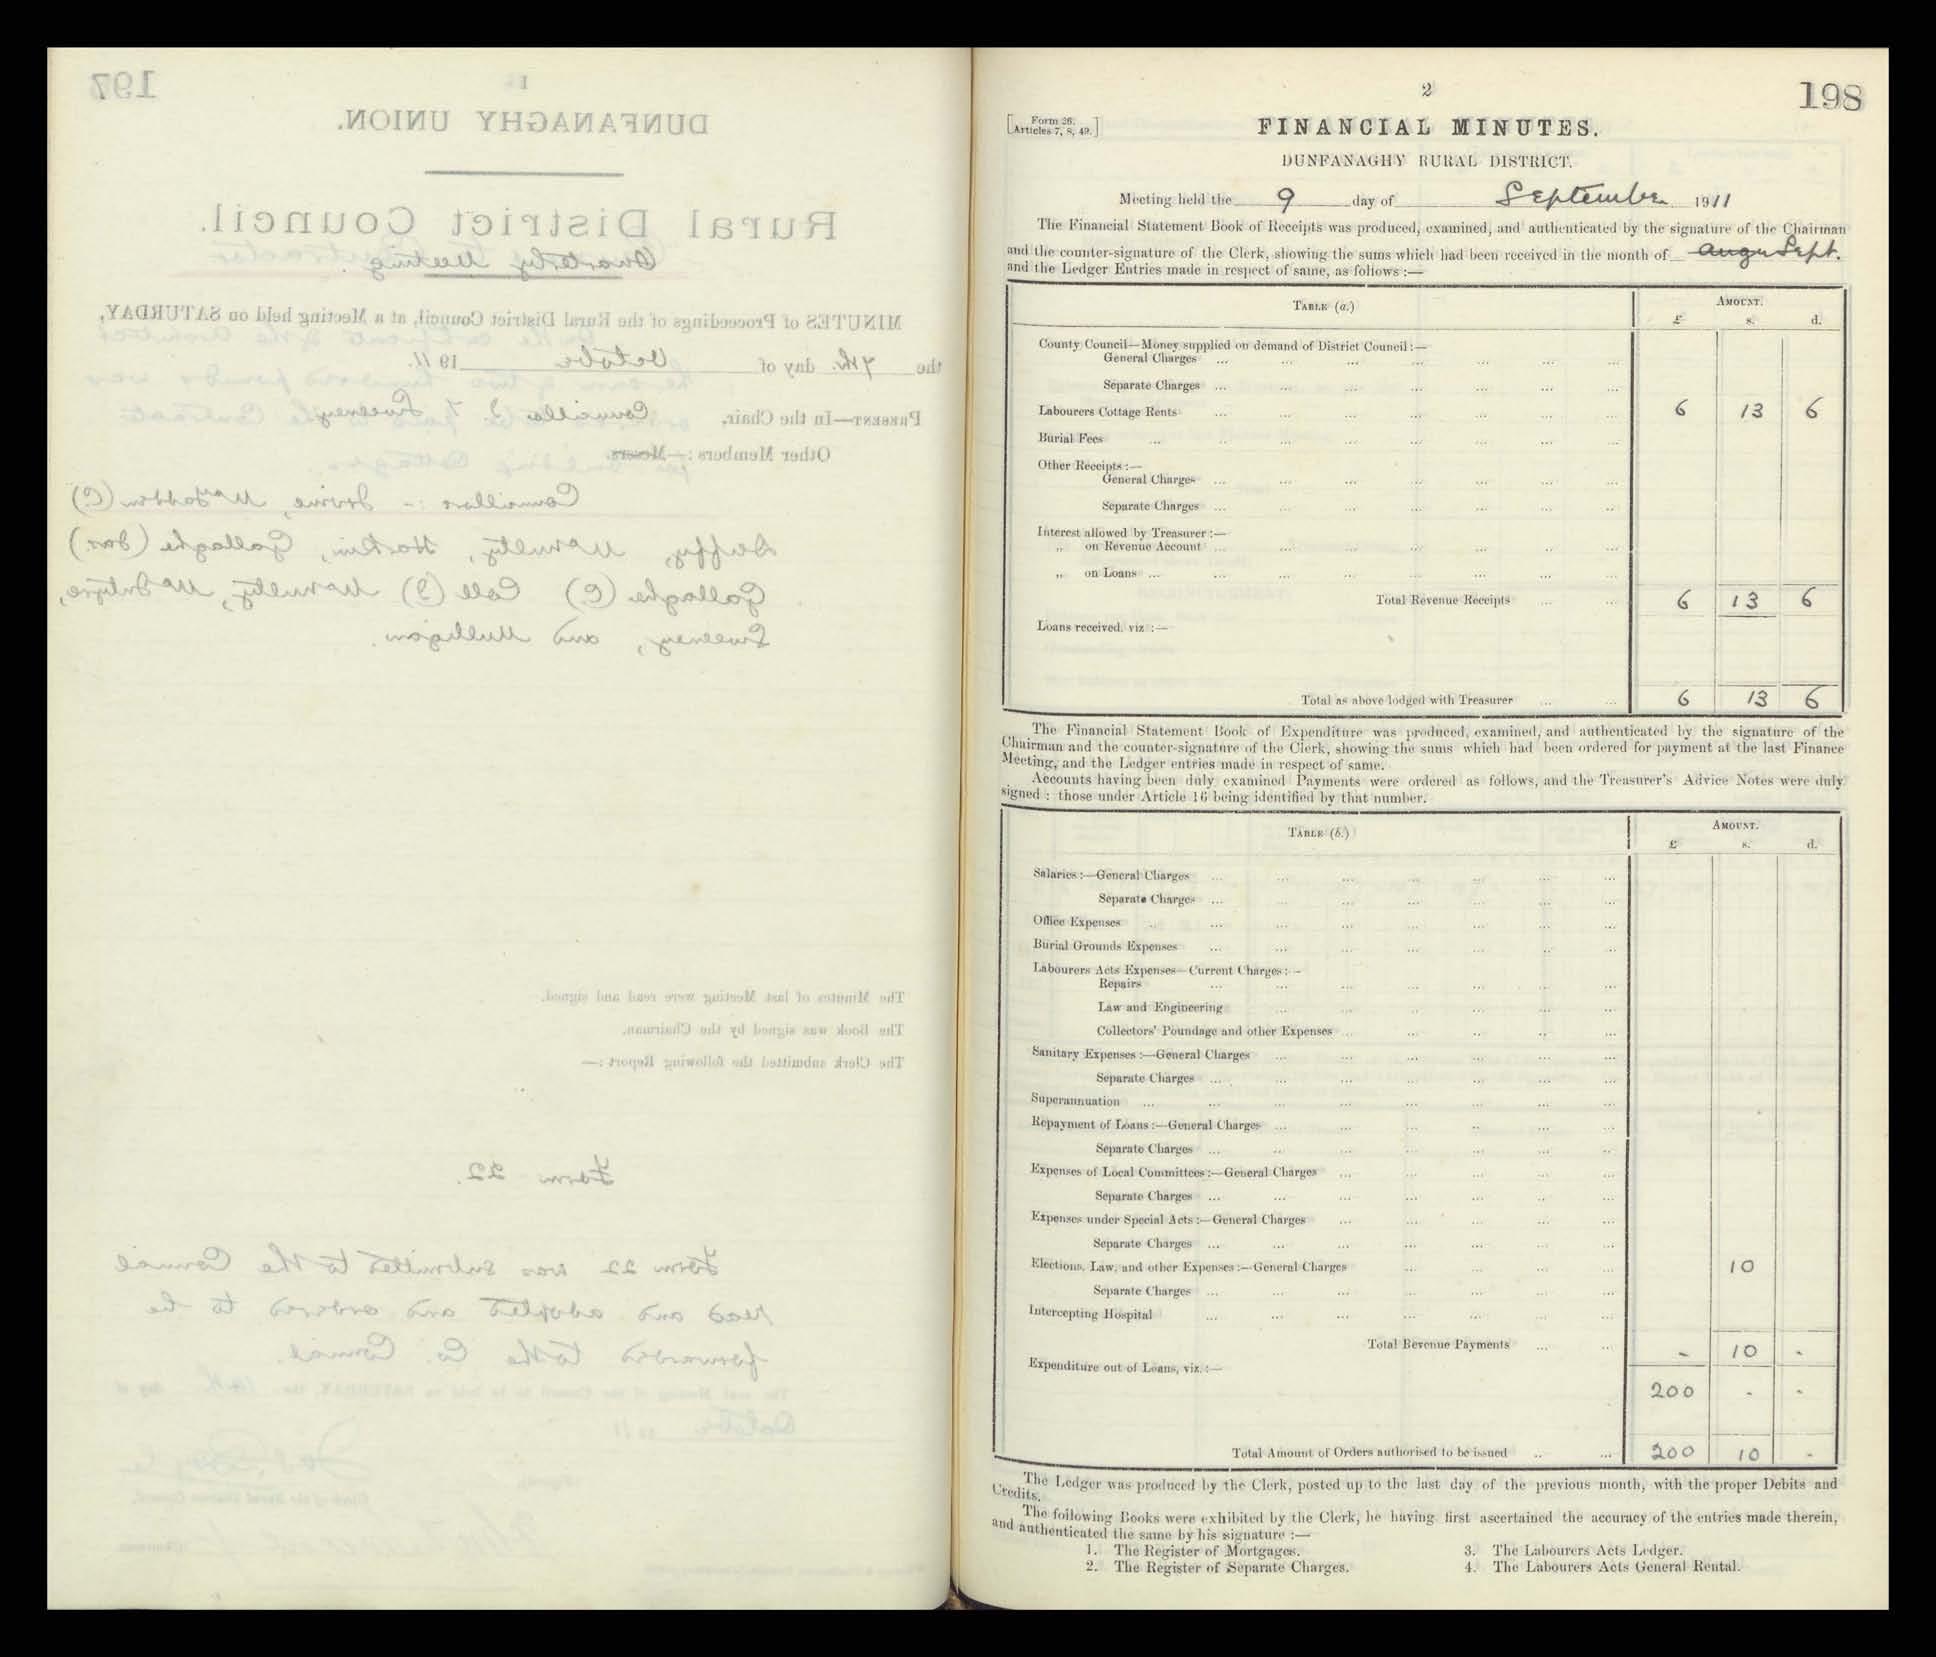 197
1
DUNFANAGHY UNION.
Rural District Council.
Quarterly Meeting.
MINUTES of Proceedings of the Rural District Council, at a Meeting held on SATURDAY,
the 7th. day of October 1911.
PRESENT—In the Chair, Councillor J. Sweeney
Other Members :—Messrs.
Councillors :- Irvine, McFadden (C)
Duffy, McNulty, Harkin, Gallagher (Jas)
Gallagher (C) Coll (J) McNulty, McIntyre,
Sweeney, and Mulligan.
The Minutes of last Meeting were read and signed.
The Book was signed by the Chairman.
The Clerk submitted the following Report :—
Form 22.
Form 22 was submitted to the Council
read and adopted and ordered to be
forwarded to the Co. Council.
2
198
[Form 26. Articles 7, 8, 49.]
FINANCIAL MINUTES.
DUNFANAGHY RURAL DISTRICT.
Meeting held the 9 day of September 1911
The Financial Statement Book of Receipts was produced, examined, and authenticated by the signature of the Chairman
and the counter-signature of the Clerk, showing the sums which had been received in the month of Augu Sept.
and the Ledger Entries made in respect of same, as follows :—
TABLE (a.) AMOUNT.
£ s. d.
County Council—Money supplied on demand of District Council :—
General Charges ... ... ... ... ... ... ...
Separate Charges ... ... ... ... ... ... ...
Labourers Cottage Rents ... ... ... ... ... ... ... 6 13 6
Burial Fees ... ... ... ... ... ... ... ...
Other Receipts :—
General Charges ... ... ... ... ... ... ...
Separate Charges ... ... ... ... ... ... ...
Interest allowed by Treasurer :—
„ on Revenue Account ... ... ... ... ... ... ...
„ on Loans ... ... ... ... ... ... ... ...
Total Revenue Receipts ... ... 6 13 6
Loans received, viz :—
Total as above lodged with Treasurer ... ... 6 13 6
The Financial Statement Book of Expenditure was produced, examined, and authenticated by the signature of the
Chairman and the counter-signature of the Clerk, showing the sums which had been ordered for payment at the last Finance
Meeting, and the Ledger entries made in respect of same.
Accounts having been duly examined Payments were ordered as follows, and the Treasurer's Advice Notes were duly
signed : those under Article 16 being identified by that number.
TABLE (b.) AMOUNT.
£ s. d.
Salaries :—General Charges ... ... ... ... ... ... ...
Separate Charges ... ... ... ... ... ... ...
Office Expenses ... ... ... ... ... ... ... ...
Burial Grounds Expenses ... ... ... ... ... ... ...
Labourers Acts Expenses—Current Charges :—
Repairs ... ... ... ... ... ... ...
Law and Engineering ... ... ... ... ... ...
Collectors' Poundage and other Expenses ... ... ... ... ...
Sanitary Expenses :—General Charges ... ... ... ... ... ...
Separate Charges ... ... ... ... ... ... ...
Superannuation ... ... ... ... ... ... ... ...
Repayment of Loans :—General Charges ... ... ... ... ... ...
Separate Charges ... ... ... ... ... ... ...
Expenses of Local Committees :—General Charges ... ... ... ... ...
Separate Charges ... ... ... ... ... ... ...
Expenses under Special Acts :—General Charges ... ... ... ... ...
Separate Charges ... ... ... ... ... ... ...
Elections, Law, and other Expenses :—General Charges ... ... ... ... 10
Separate Charges ... ... ... ... ... ... ...
Intercepting Hospital ... ... ... ... ... ... ...
Total Revenue Payments ... ... - 10 -
Expenditure out of Loans, viz. :—
200 - -
Total Amount of Orders authorised to be issued ... ... 200 10 -
The Ledger was produced by the Clerk, posted up to the last day of the previous month, with the proper Debits and
Credits.
The following Books were exhibited by the Clerk, he having first ascertained the accuracy of the entries made therein,
and authenticated the same by his signature :—
1. The Register of Mortgages. 3. The Labourers Acts Ledger.
2. The Register of Separate Charges. 4. The Labourers Acts General Rental.